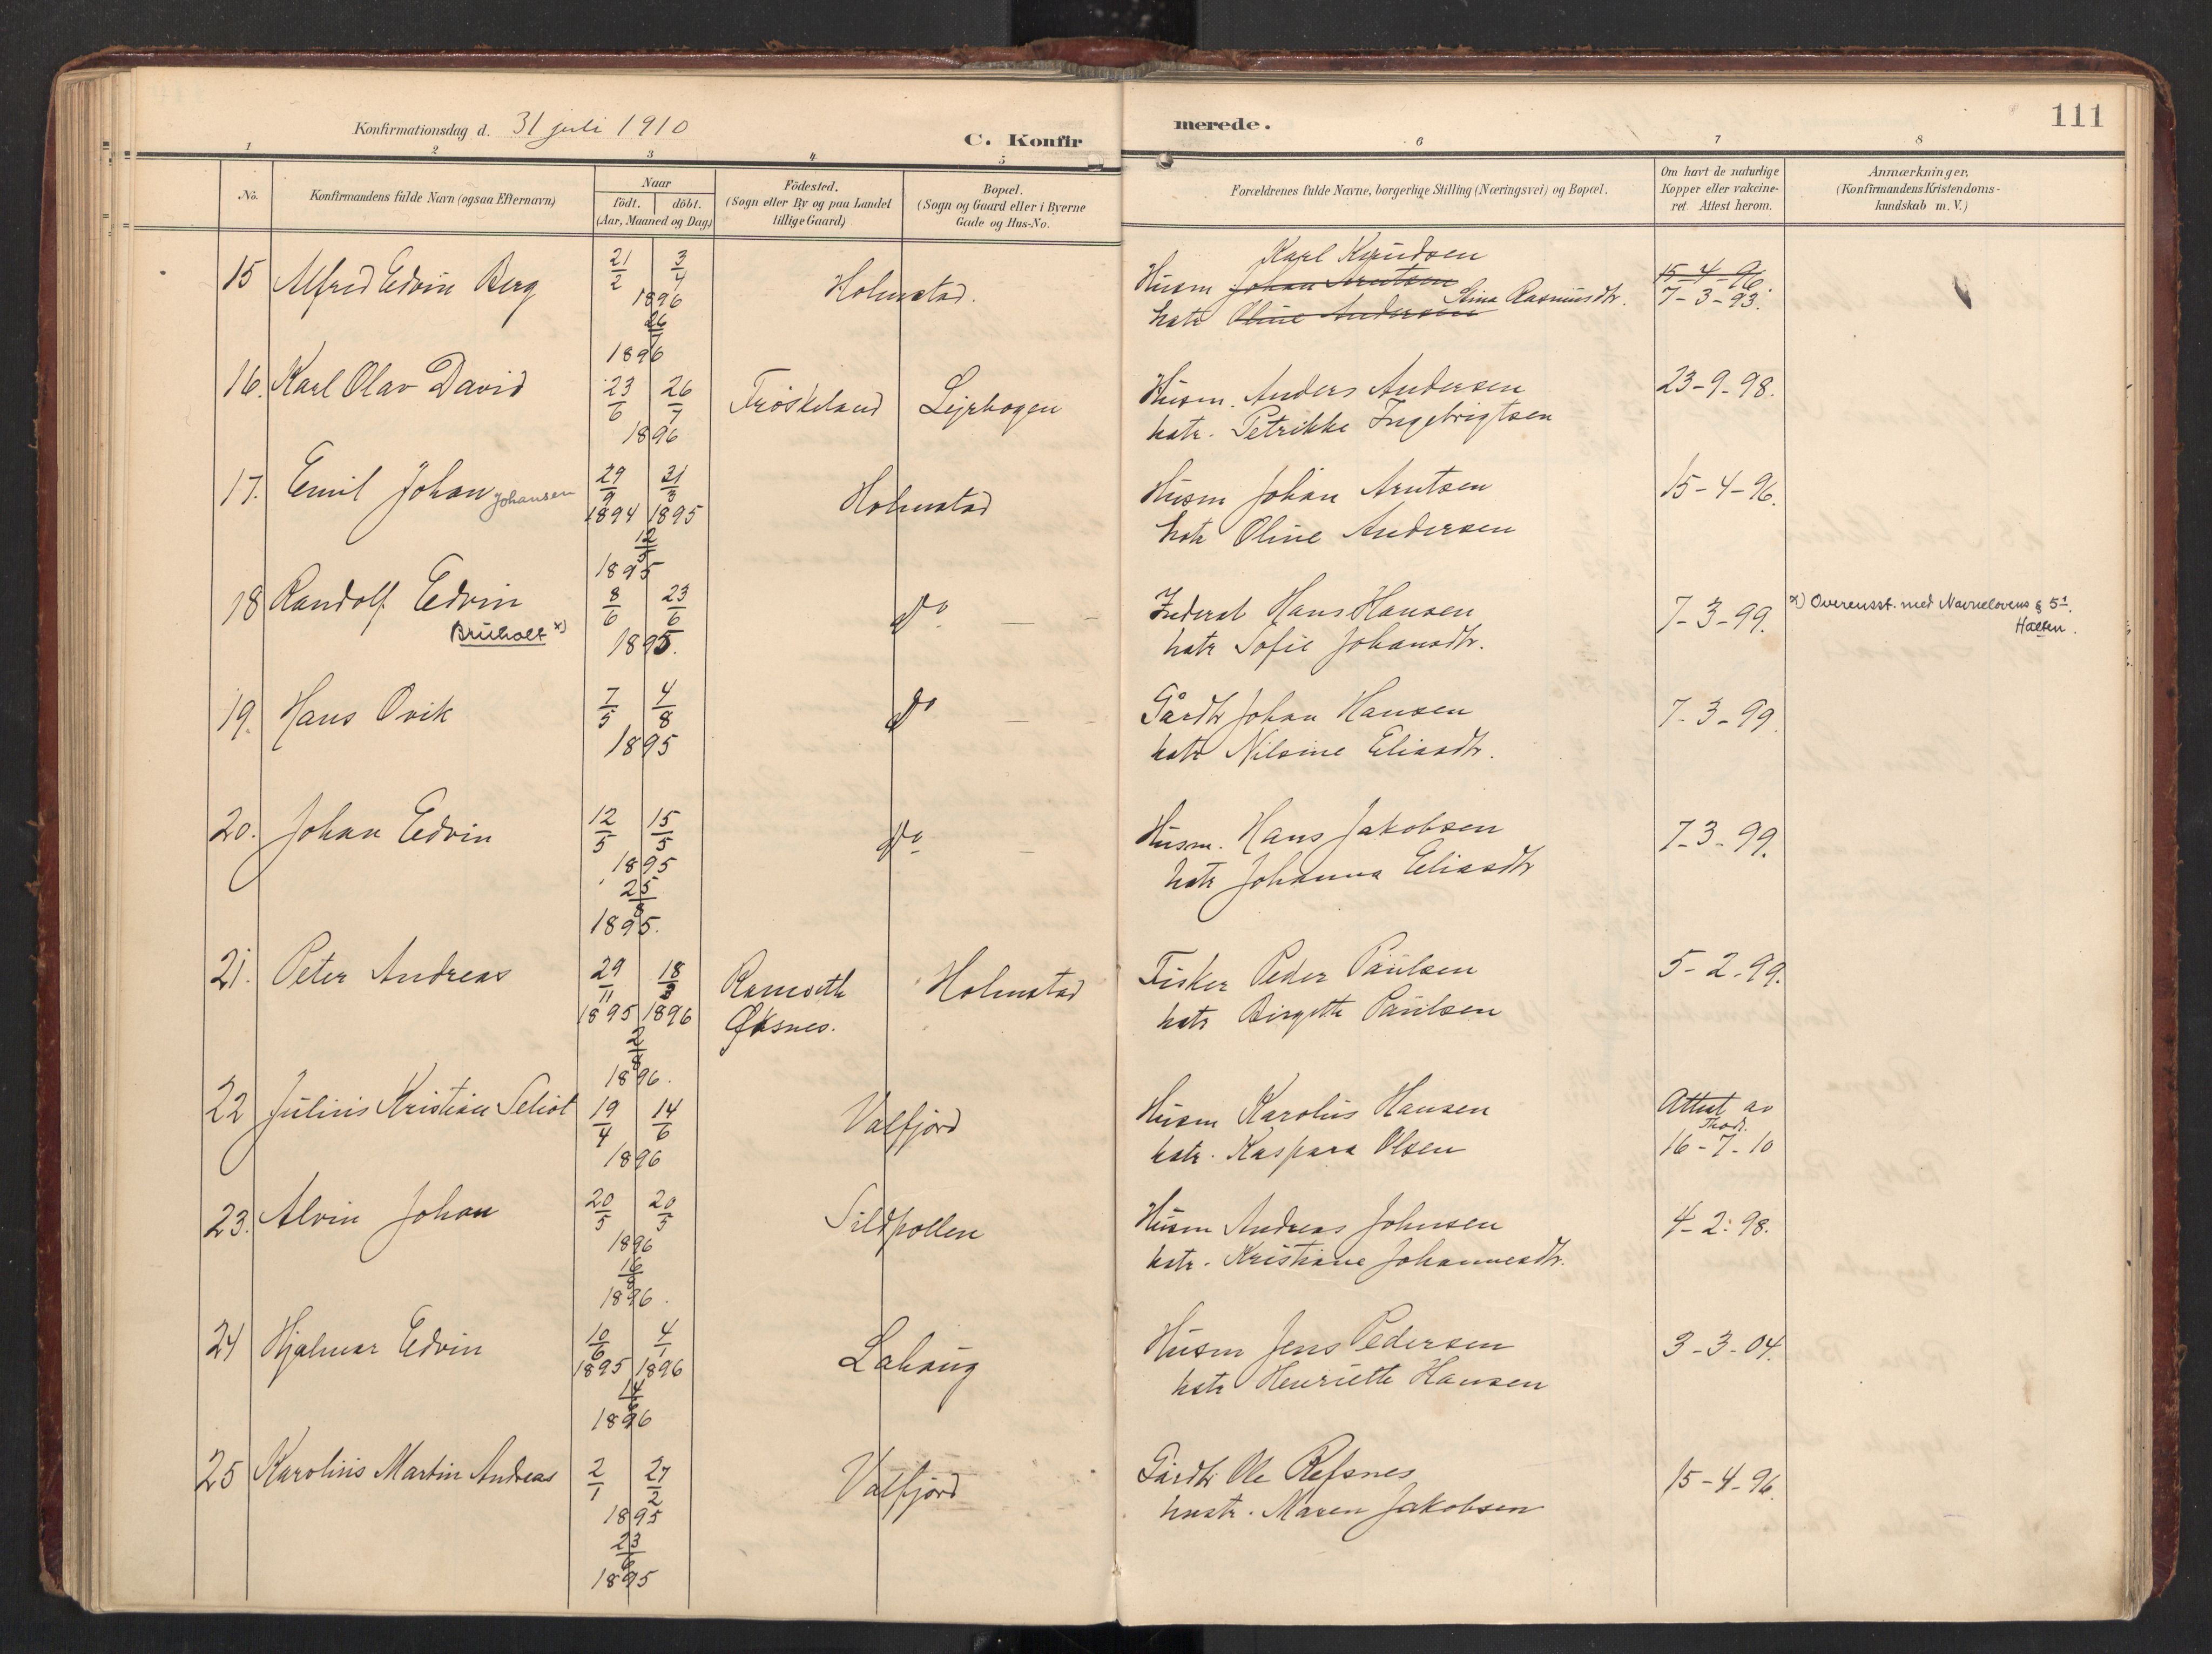 Konfirmationsdag d. 31 juli 1910
C. Konfir
merede.
111
1 2 3 4 5 6 7 8
No.
Konfirmandens fulde Navn (ogsaa Efternavn)
Naar
födt. döbt.
(Aar, Maaned og Dag)
Födested.
(Sogn eller By og paa Landet
tillige Gaard)
Bopæl.
(Sogn og Gaard eller i Byerne
Gade og Hus-No.
Forældrenes fulde Navne, borgerlige Stilling (Næringsvei) og Bopæl.
Om havt de naturlige
Kopper eller vakcine-
ret. Attest herom.
Anmærkninger,
(Konfirmandens Kristendoms-
kundskab m. V.)
15 Alfred Edvin Berg 21/2 3/4 Holmstad.
1896
26/7
1896
Karl Knudsen
Husm Johan Arntsen
hstr Oline Andersen Stina Rasmusdtr.
15-4-96.
7-3-93.
16. Karl Olav David 23/6 26/7 Frøskeland Lejrhogen
1896
Husm. Anders Andersen
hstr. Petrikke Ingebrigtsen
23-9-98.
17. Emil Johan Johansen 29/9 31/3 Holmstad
1894 1895
12/5
1895
Husm Johan Arntsen
hstr Oline Andersen
15-4-96.
18 Randolf Edvin 8/6 23/6 do
Bruholt x) 1895.
Inderst Hans Hansen
hstr Sofie Johansdtr.
7-3-99.
x) Overensst. med Navnelovens § 5¹.
19. Hans Ovik 7/5 4/8 do
1895
Gårdbr Johan Hansen
hstr Nilsine Eliasdtr.
7-3-99.
20. Johan Edvin 12/5 15/5 do
1895
25/8
1895.
Husm. Hans Jakobsen
hstr Johanna Eliasdtr
7-3-99.
21. Peter Andreas 29/11 18/3 Holmstad
1895 1896 Øksnes.
2/8
1896.
Fisker Peder Paulsen
hstr Birgitte Paulsen
5-2-99.
22 Julius Kristian Seliot 19/4 14/6 Valfjord
1896
Husm Karolius Hansen
hstr. Kaspara Olsen
Attest av
16-7-10
23. Alvin Johan 20/5 20/5 Sildpollen
1896
16/8
1896.
Husm Andreas Johnsen
hstr. Kristiane Johannesdtr.
4-2-98.
24 Hjalmar Edvin 10/6 4/1 Lahaug
1895 1896
14/6
1896
Husm Jens Pedersen
hstr Henriette Hansen
3-3-04.
25 Karolius Martin Andreas 2/1 27/2 Valfjord
1895
23/6
1895
Gårdbr Ole Refsnes
hustr. Maren Jakobsen
15-4-96.